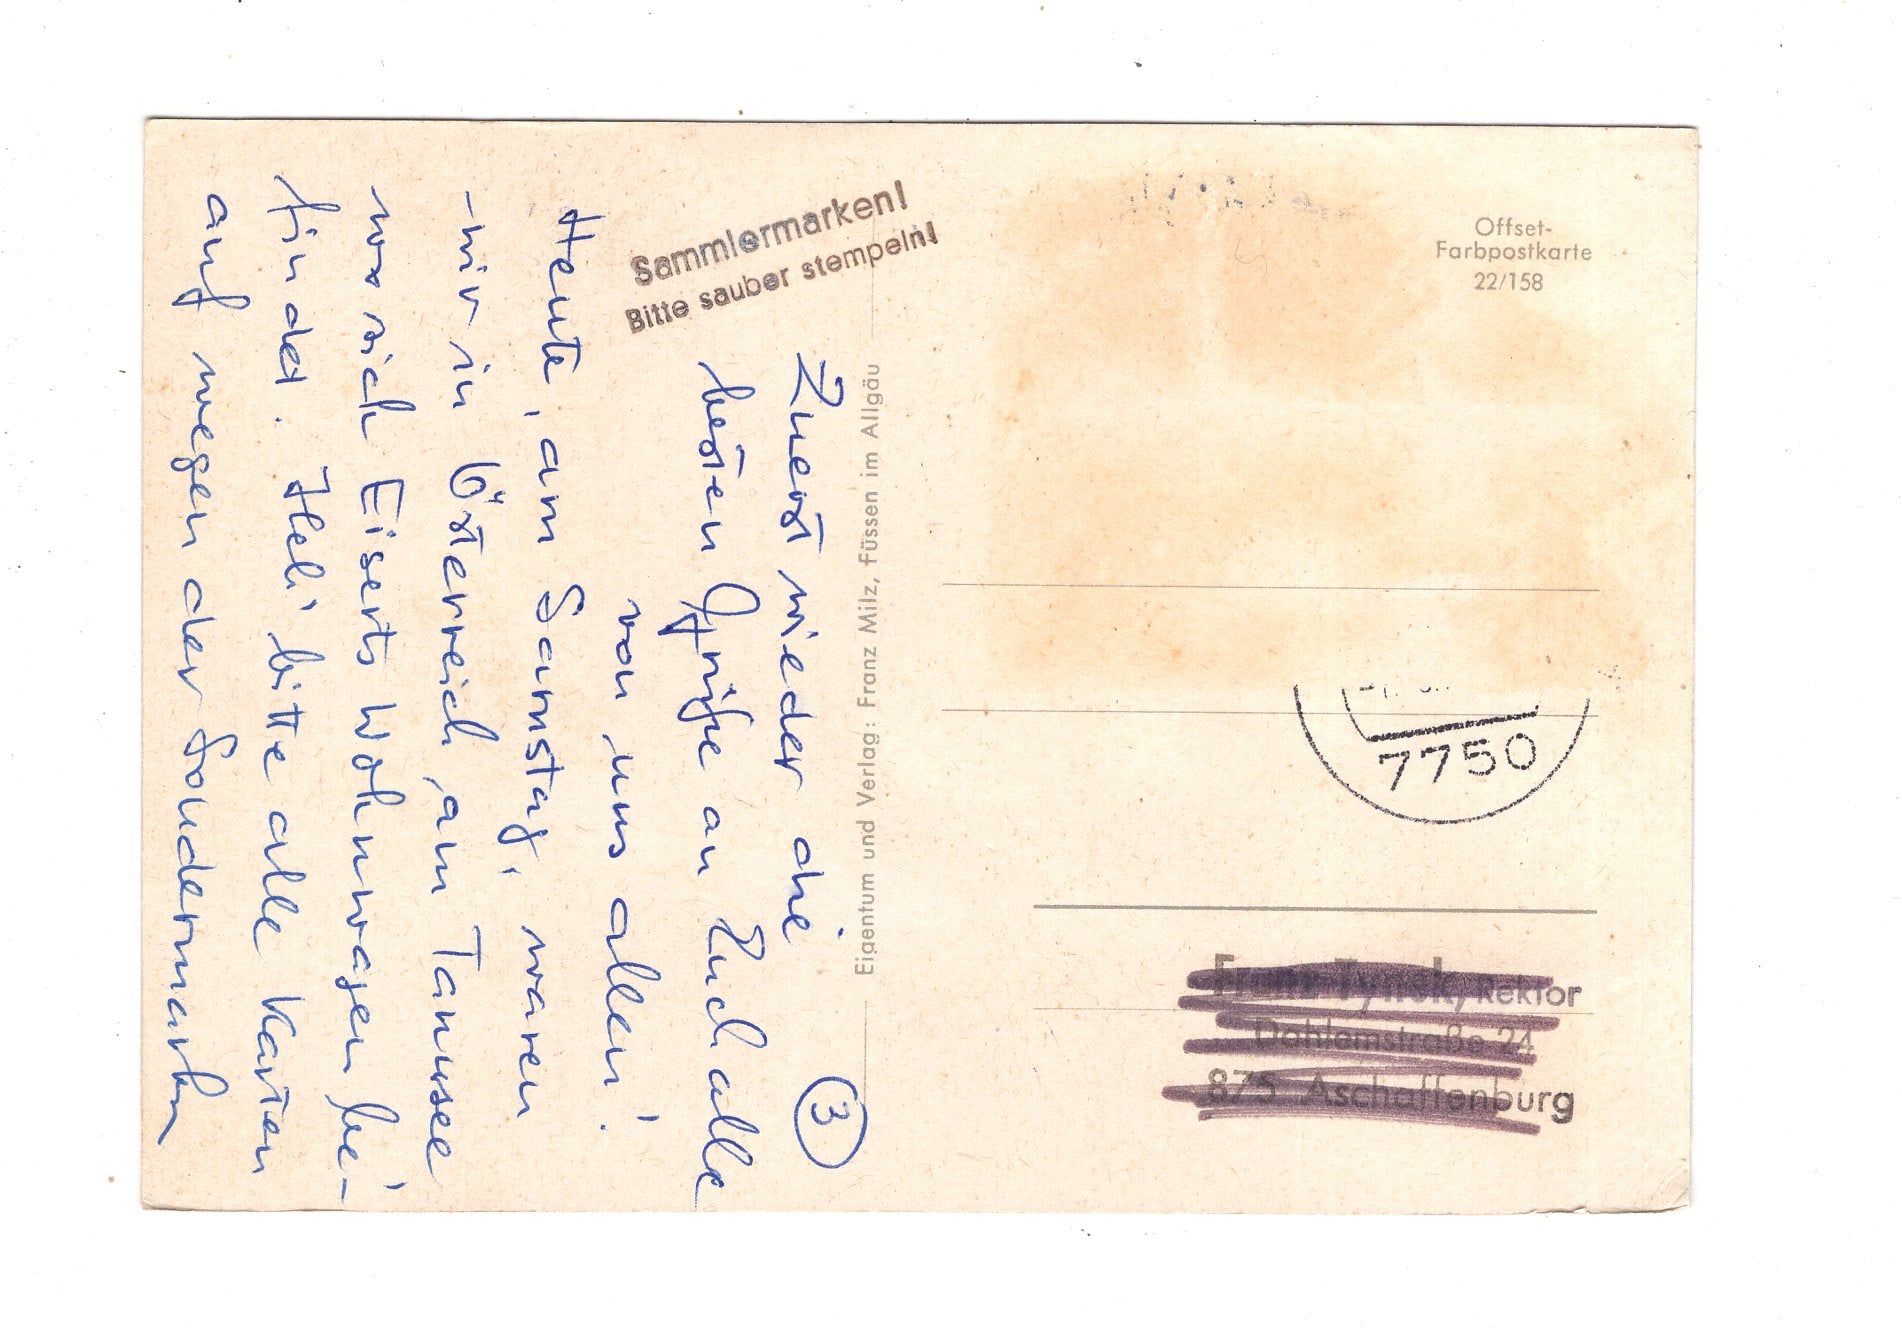 Sammlermarken!
Bitte sauber stempeln!
3
Zuerst wieder die
besten Grüße an Euch alle
von uns allen!
Heute, am Samstag, waren
wir in Österreich, am
wo sich Eiserts Wohnwagen be-
findet. Heb' bitte alle Karten
auf wegen der Sondermarken
Eigentum und Verlag: Franz Milz, Füssen im Allgäu
Offset-
Farbpostkarte
22/158
7750
Rektor
Dahlemstraße 24
875 Aschaffenburg